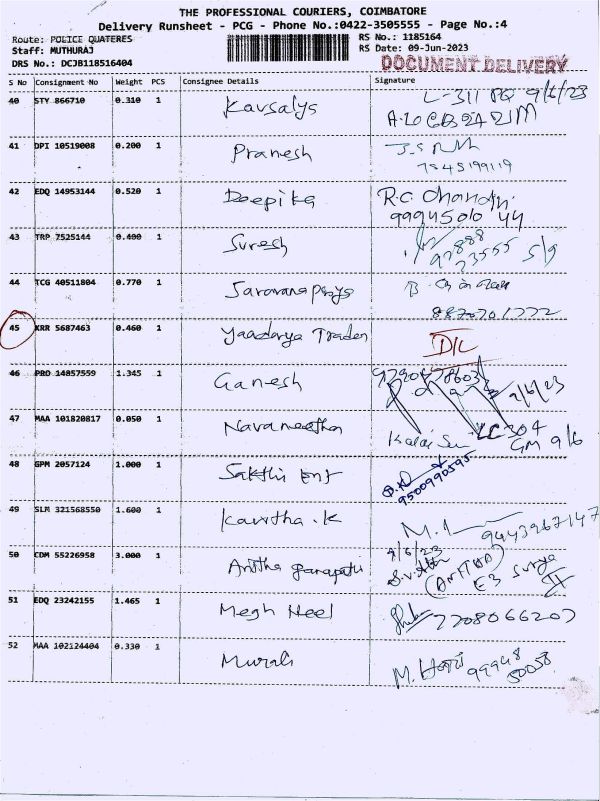 THE PROFESSIONAL COURIERS, COIMBATORE
Delivery Runsheet - PCG - Phone No.:0422-3505555 - Page No.:4
Route: POLICE QUATERES RS No.: 1185164
Staff: MUTHURAJ RS Date: 09-Jun-2023
DRS No.: DCJB118516404 DOCUMENT DELIVERY
S No Consignment No Weight PCS Consignee Details Signature
40 STY 866710 0.310 1 Kavsalys L-311 PQ 9/6/23
41 DPI 10519008 0.200 1 Pranesh
7545199119
42 EDQ 14953144 0.520 1 Deepika R.C. Chandn
9994501044
43 TRP 7525144 0.400 1 Suresh
44 TCG 40511804 0.770 1 Saravanapriya
8870701772
45 KRR 5687463 0.460 1 Yaadarya Traders D/L
46 PRO 14857559 1.345 1 Ganesh
47 MAA 101820817 0.050 1 Navaneetha Kalai LC 304
GM 9/6
48 GPM 2057124 1.000 1 Sakthi Ent
9500990595
49 SLM 321568550 1.600 1 Kavitha.K 9443967147
50 CDM 55226958 3.000 1 Anitha ganapati 9/6/23
(ANITHA) E3 Surya
II
51 EDQ 23242155 1.465 1 Megh Neel 7708066207
52 MAA 102124404 0.330 1 Murali M. Hari 99948
50058